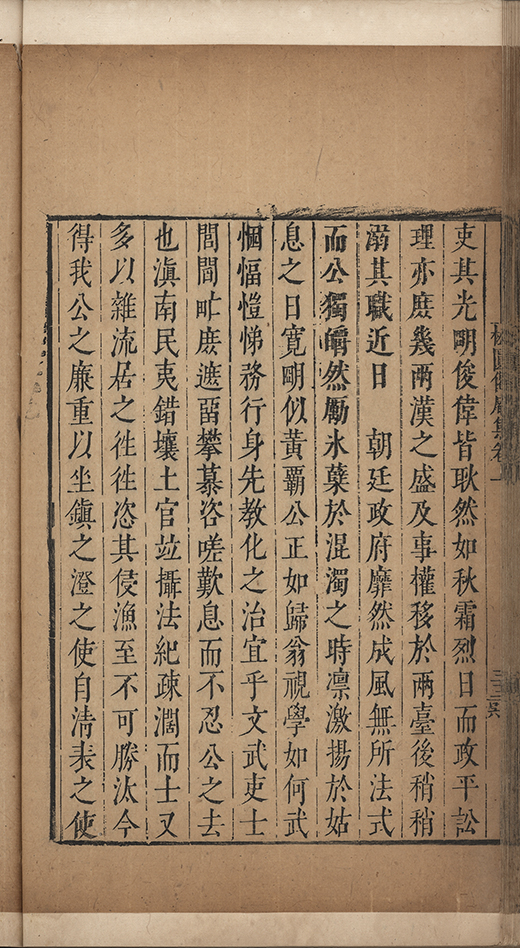 吏其光眀俊偉皆耿然如秋霜烈日而政平訟
理亦庶幾兩漢之盛及事權移於兩臺後稍稍
溺其職近日　朝廷政府靡然成風無所法式
而公獨皭然勵氷蘗於混濁之時凛激揚於姑
息之日寛眀似黄霸公正如歸翁視學如何武
悃愊愷悌務行身先教化之治宜乎文武吏士
閭閻甿庶遮畱攀慕咨嗟歎息而不忍公之去
也滇南民夷錯壤土官竝攝法紀疎濶而士又
多以雜流居之徃徃恣其侵漁至不可勝汰今
得我公之㢘重以坐鎮之澄之使自清表之使